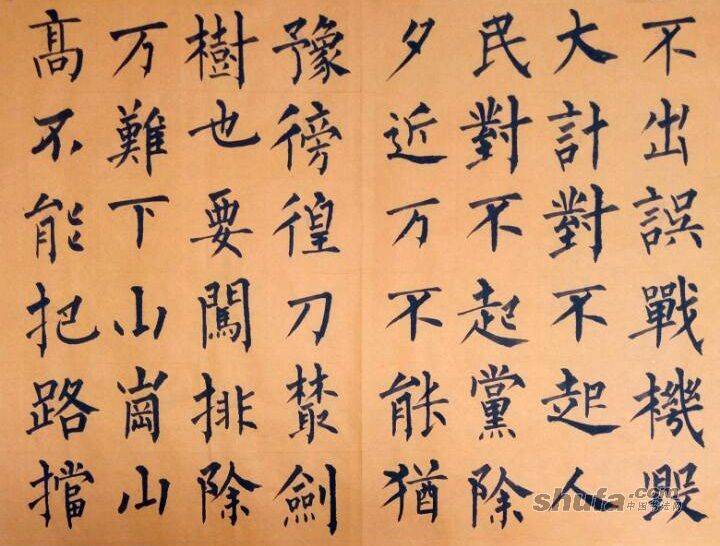 不出誤戰機毀
大計對不起人
民對不起黨除
夕近万不能猶
豫徬徨刀樷劍
樹也要闖排除
万難下山崗山
髙不能把路擋
shufa.com
中国书法网